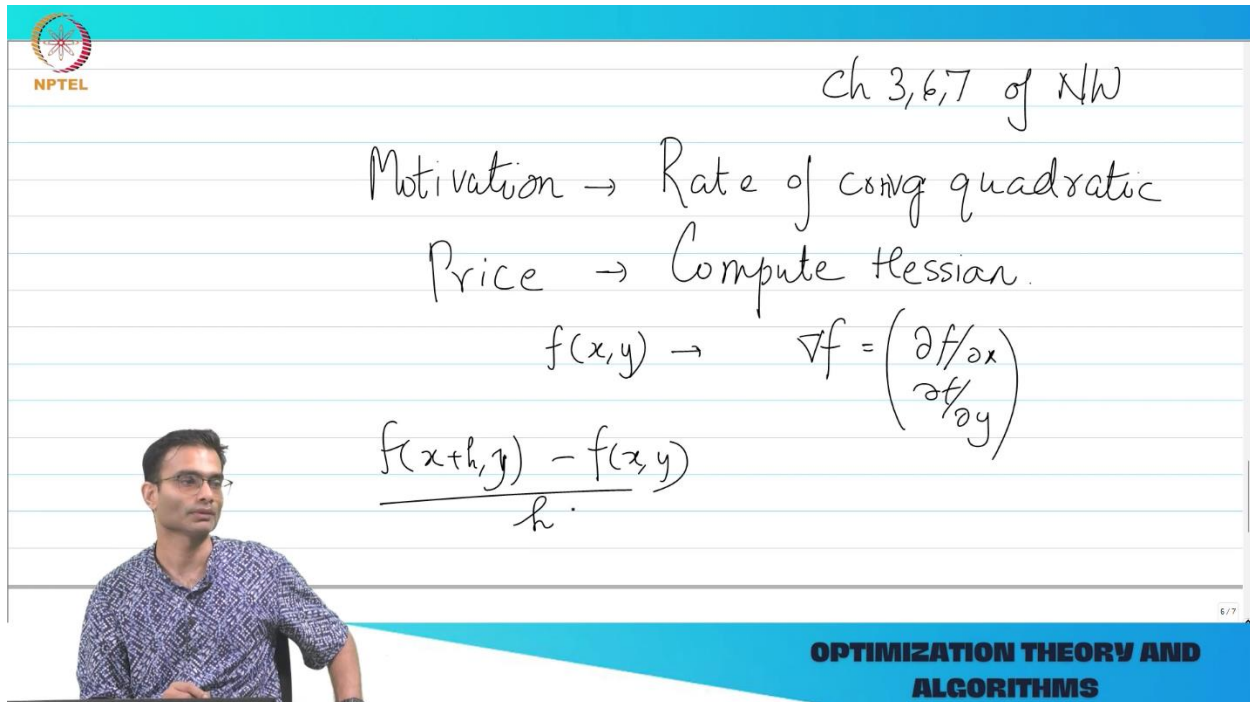 NPTEL
Ch 3,6,7 of NW
Motivation → Rate of convg quadratic
Price → Compute Hessian.
f(x,y) → ∇f = (∂f/∂x
∂f/∂y)
f(x+h,y) - f(x,y)
h
6/7
OPTIMIZATION THEORY AND
ALGORITHMS